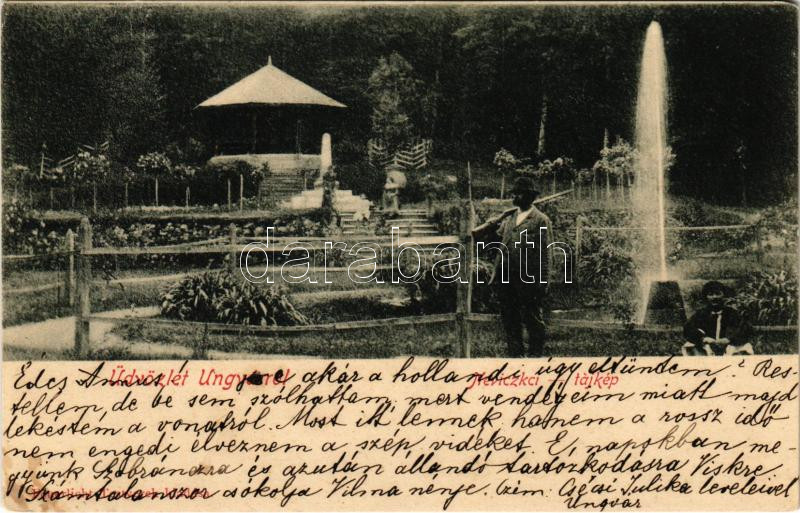 darabanth
Üdvözlet Ungvárról
Neviczkei tájkép
Édes Annus! e, akár a hollandi úgy eltüntem? Res-
tellem, de be sem szólhattam, mert vendégeim miatt majd
lekéstem a vonatról. Most itt lennék hanem a rossz idő
nem engedi élveznem a szép vidéket. E, napokban me-
gyünk Szobránczra és azután állandó tartózkodásra Viskre.
Számtalanszor csókolja Vilma nénje. Czím: Csécsi Julika leveleivel
Ungvár